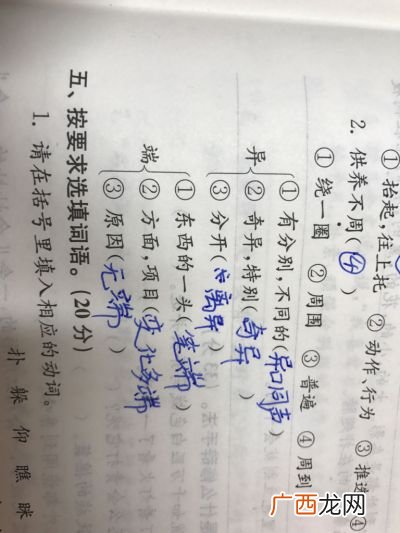 ① 抬起,往上托 ② 动作、行为 ③ 推选 ④
2. 供养不周(④)
① 绕一圈 ② 周围 ③ 普遍 ④ 周到
① 有分别,不同的(异口同声)
异 ② 奇异,特别(奇异)
③ 分开(离异)
① 东西的一头(笔端)
端 ② 方面,项目(变化多端)
③ 原因(无端)
五、按要求选填词语。(20分)
1. 请在括号里填入相应的动词。
扑 躲 仰 瞧 眯
广西龙网